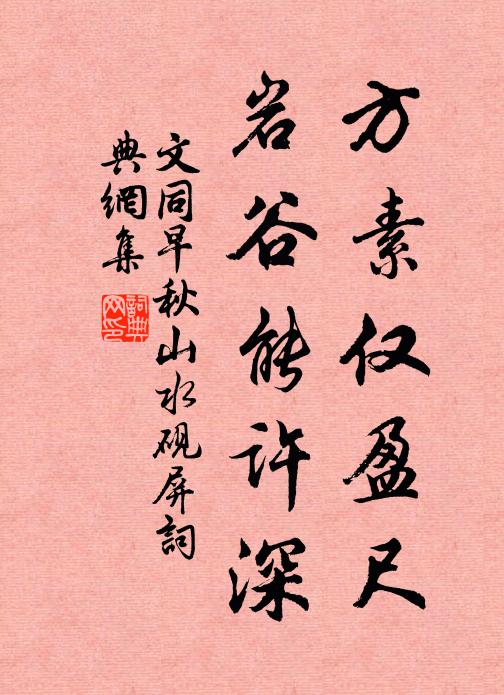 方素仅盈尺
岩谷能许深
文同早秋山水砚屏詞
典網集
詞典网印